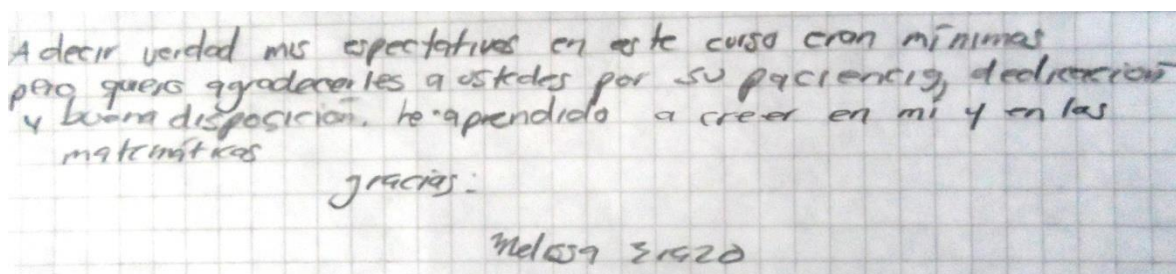 A decir verdad mis espectativas en este curso eran mínimas
pero quero agradecerles a ustedes por su paciencia, dedicación
y buena disposición. he aprendido a creer en mi y en las
matemáticas
gracias.
Melissa Erazo